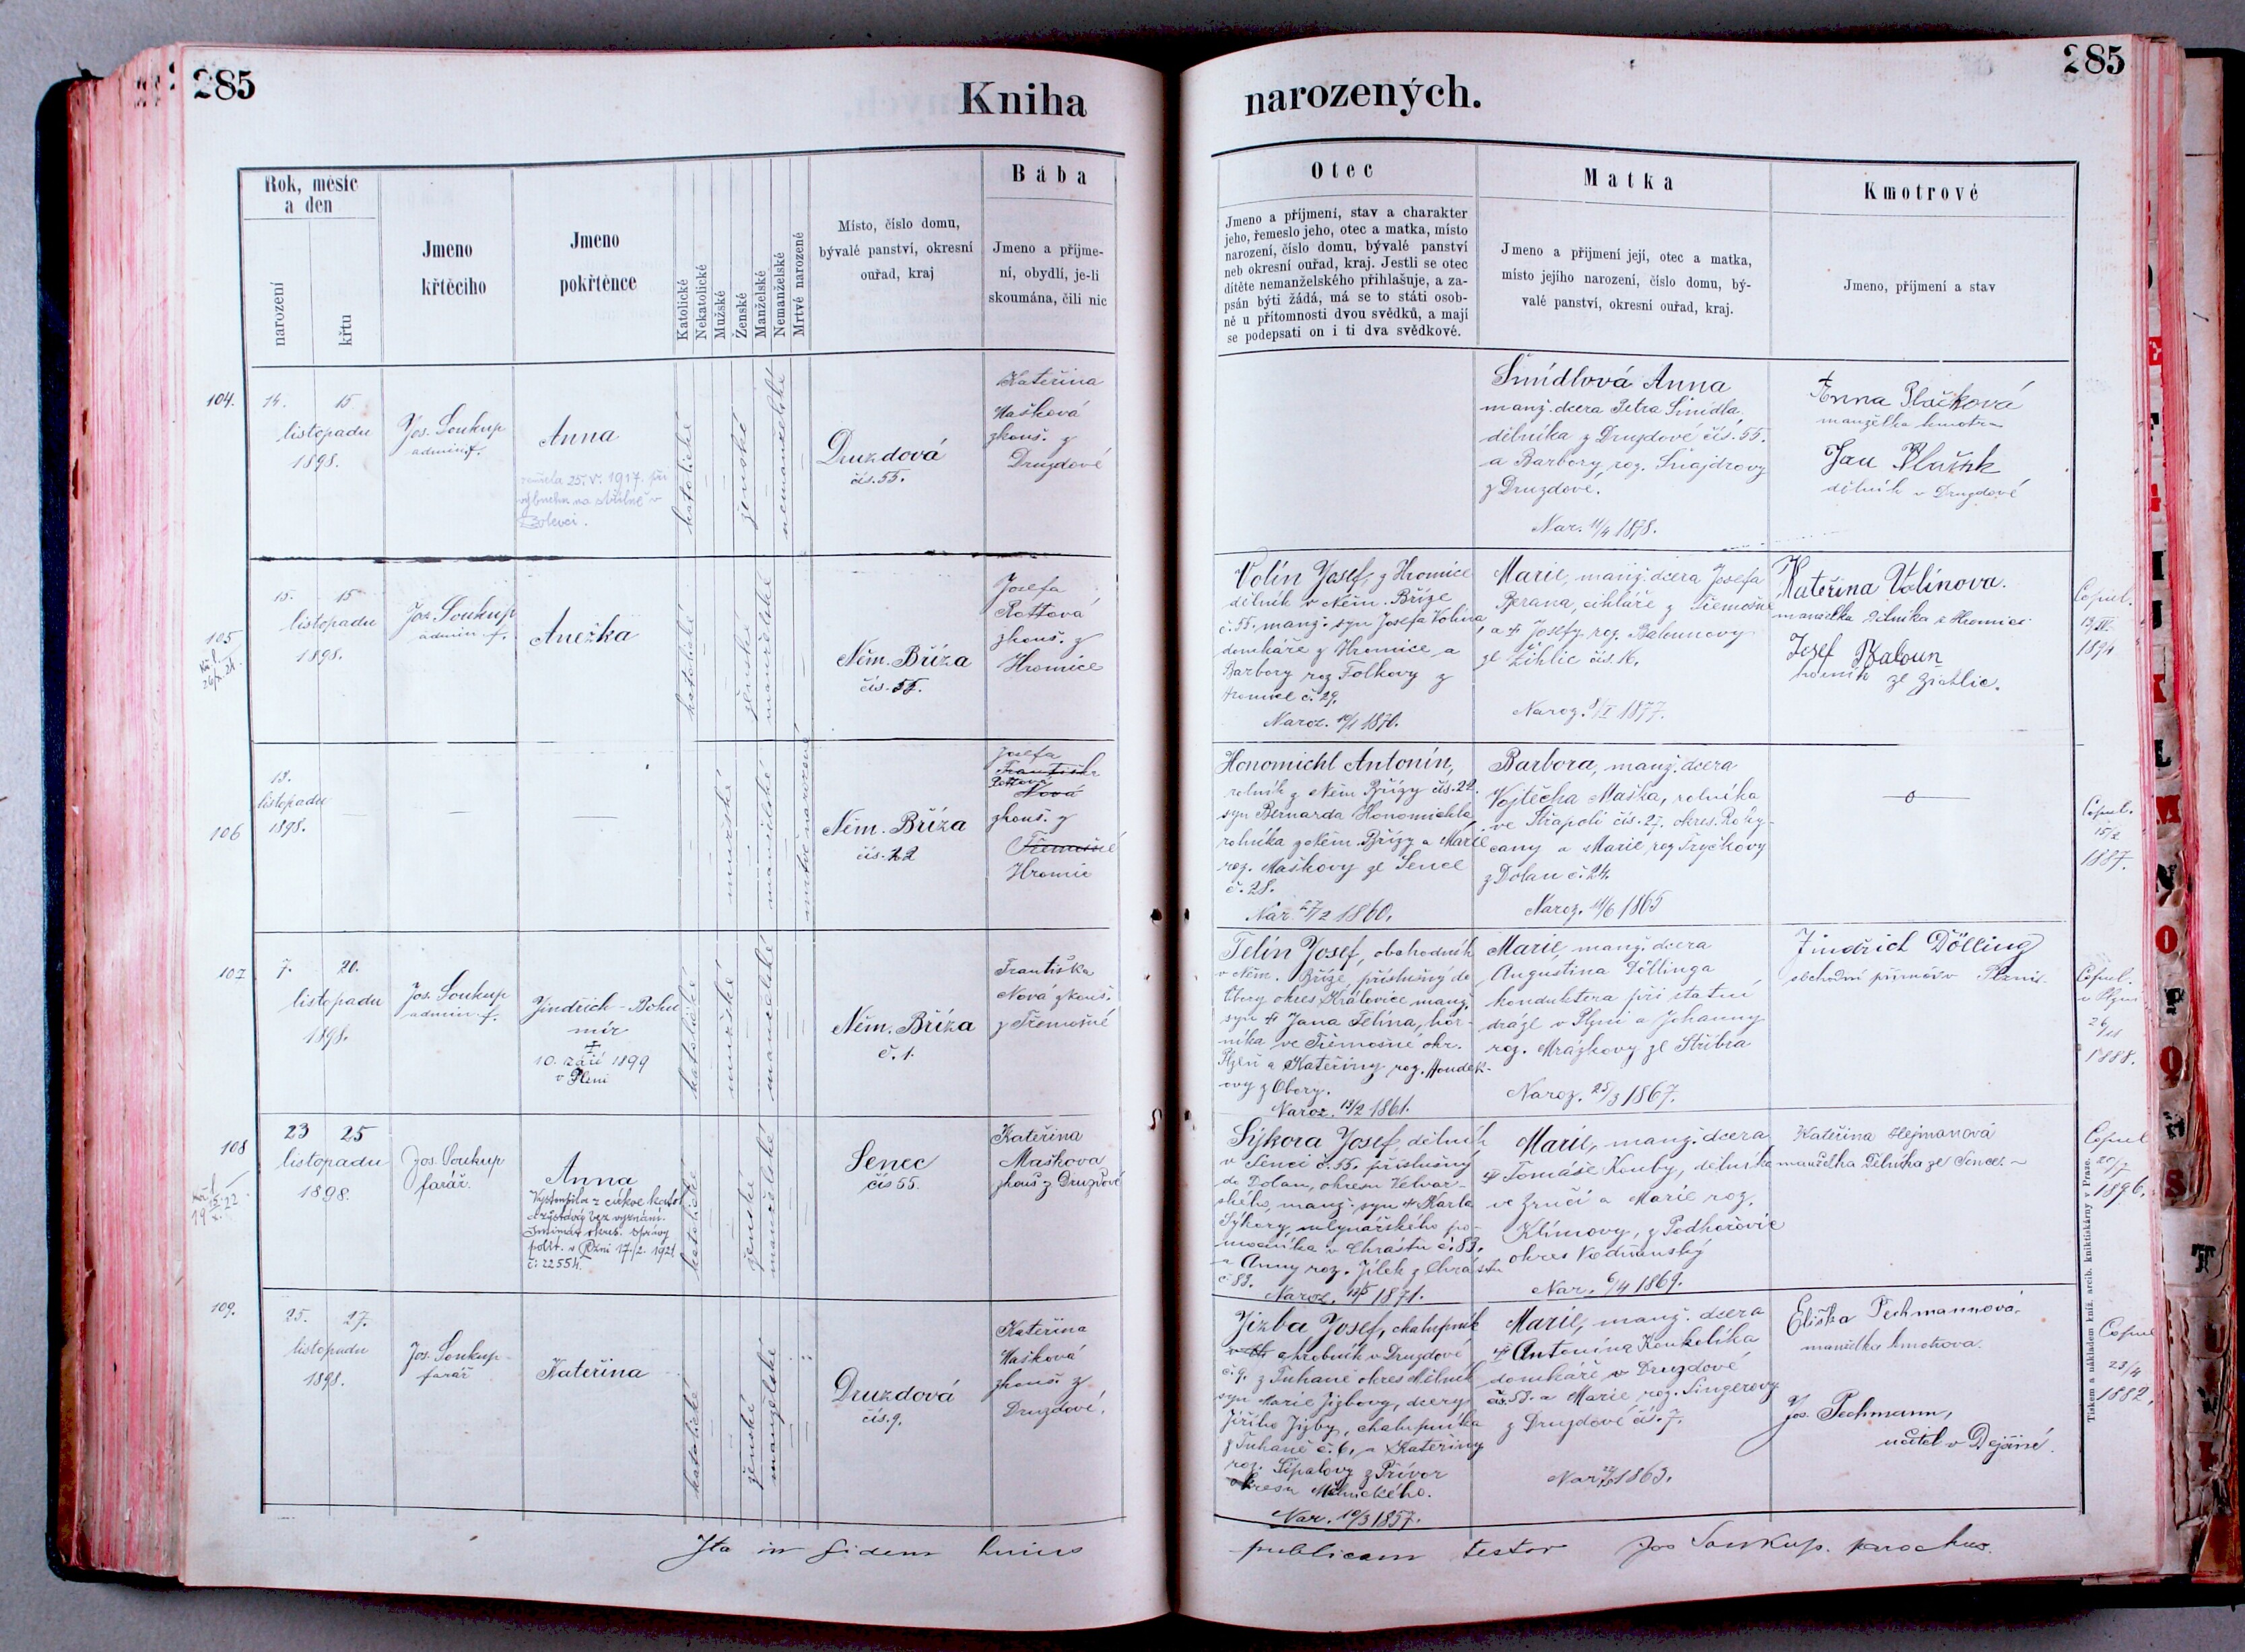 285
Kniha
narozených.
285
Rok, měsíc
a den
narození
křtu
Jmeno
křtěcího
Jmeno
pokřtěnce
Katolické
Nekatolické
Mužské
Ženské
Manželské
Nemanželské
Mrtvě narozené
Místo, číslo domu,
bývalé panství, okresní
ouřad, kraj
Bába
Jmeno a příjme-
ní, obydlí, je-li
skoumána, čili nic
Otec
Jmeno a příjmení, stav a charakter
jeho, řemeslo jeho, otec a matka, místo
narození, číslo domu, bývalé panství
neb okresní ouřad, kraj. Jestli se otec
dítěte nemanželského přihlašuje, a za-
psán býti žádá, má se to státi osob-
ně u přítomnosti dvou svědků, a mají
se podepsati on i ti dva svědkové.
Matka
Jmeno a příjmení její, otec a matka,
místo jejího narození, číslo domu, bý-
valé panství, okresní ouřad, kraj.
Kmotrové
Jmeno, příjmení a stav
104.
14. 15
listopadu
1898.
Jos. Soukup
admin. f.
Anna
25. V. 1917. při
výbuchu na v
Bolevci.
katolické
ženské
nemanželské
Druzdová
čís. 55.
Kateřina
Mašková
zkouš. z
Druzdové
Šmídlová Anna
manž. dcera Petra Šmídla
dělníka z Druzdové čís. 55.
a Barbory roz. Šnajdrovy
z Druzdové.
Nar. 11/4 1878.
Anna Plačková
manželka kmotra
Jan
dělník v Druzdové
105
15. 15
listopadu
1898.
Jos. Soukup
admin. f.
Anežka
katolické
ženské
manželské
Něm. Bříza
čís. 55.
Josefa
Rottová
zkouš. z
Hromice
Volín Josef, z Hromice
dělník v Něm. Bříze
č. 55. manž. syn Josefa Volína
domkáře z Hromice a
Barbory roz. Folkovy z
Hromice č. 29.
Naroz. 1870.
Marie, manž. dcera Josefa
Berana, cihláře z Třemošné
a † Josefy roz. Balounovy
ze Žihlic čís. 16.
Naroz. 1877.
Kateřina Volínova.
manželka dělníka z Hromice
Josef Baloun
horník ze Žichlic.
Copul.
1894
106
13.
listopadu
1898.
mužské
manželské
mrtvě narozené
Něm. Bříza
čís. 22
Josefa
Františka
Rottová
Nová
zkouš. z
Třemošné
Hromic
Honomichl Antonín,
rolník z Něm. Břízy čís. 22.
syn Bernarda Honomichla
rolníka z Něm. Břízy a Marie
roz. Maškovy ze Sence
č. 28.
Nar. 27/2 1860.
Barbora, manž. dcera
Vojtěcha Maška, rolníka
ve Střapoli čís. 27. okres. Roky-
cany a Marie roz. Tryčkovy
z Dolan č. 24.
Naroz. 11/6 1865
Copul.
15/2
1887.
107
7. 20.
listopadu
1898.
Jos. Soukup
admin. f.
Jindřich - Bohu
mír
†
10. září 1899
v Plzni
katolické
mužské
manželské
Něm. Bříza
č. 1.
Františka
Nová zkouš.
z Třemošné
Telín Josef, obchodník
v Něm. Bříze příslušný do
Obory okres Kralovice manž.
syn † Jana Telína, hor-
níka ve Třemošné okr.
Plzeň a Kateřiny roz. Houdek-
ovy z Obory.
Naroz. 13/2 1861.
Marie, manž. dcera
Augustina Döllinga
konduktera při státní
dráze v Plzni a Johanny
roz. Mrázkovy ze Stříbra
Naroz. 25/3 1867.
Jindřich Dölling
obchodní příručí v Plzni.
Copul.
v Plzni
26/
1888.
108
23 25
listopadu
1898.
Jos. Soukup
farář.
Anna
Vystoupila z církve katol.
a zůstává bez vyznání.
Intimát okres. správy
polit. v Plzni 17./2. 1921
č: 22554.
katolické
ženské
manželské
Senec
čís 55.
Kateřina
Maškova
zkouš z Druzdové
Sýkora Josef dělník
v Senci č. 55. příslušný
do Dolan, okresu Velvar-
ského, manž. syn † Karla
Sýkory, mlynářského po-
mocníka v Chrástu č. 83.
a Anny roz. Jílek z Chrástu
č. 83.
Naroz. 1871.
Marie, manž. dcera
† Tomáše Kouby, dělníka
ve Zruči a Marie roz.
Klímovy, z Podhořovic
okres Vodňanský
Nar. 6/4 1869.
Kateřina Hejmanová
manželka dělníka ze Sence.
Copul
20/7
1896.
109.
25. 27.
listopadu
1898.
Jos. Soukup
farář
Kateřina
katolické
ženské
manželské
Druzdová
čís. 9.
Kateřina
Mašková
zkouš. z
Druzdové.
Jizba Josef, chalupník
a hrobník v Druzdové
č. 9. z Tuhaně okres Mělník
syn Marie Jizbovy, dcery
Jiřího Jizby, chalupníka
z Tuhaně č. 6, a Kateřiny
roz. Šípalovy z Přívor
okresu Mělnického.
Nar. 10/3 1857.
Marie, manž. dcera
† Antonína Koukolíka
domkáře v Druzdové
čís. 53. a Marie, roz. Singerovy
z Druzdové čís. 7.
Nar. 1863.
Eliška Pechmannová,
manželka kmotrova.
Jos. Pechmann,
učitel v Dýšině.
Copul
23/4
1882.
Ita in fidem huius
publicam testor Jos Soukup. parochus.
Tiskem a nákladem kníž. arcib. knihtiskárny v Praze.